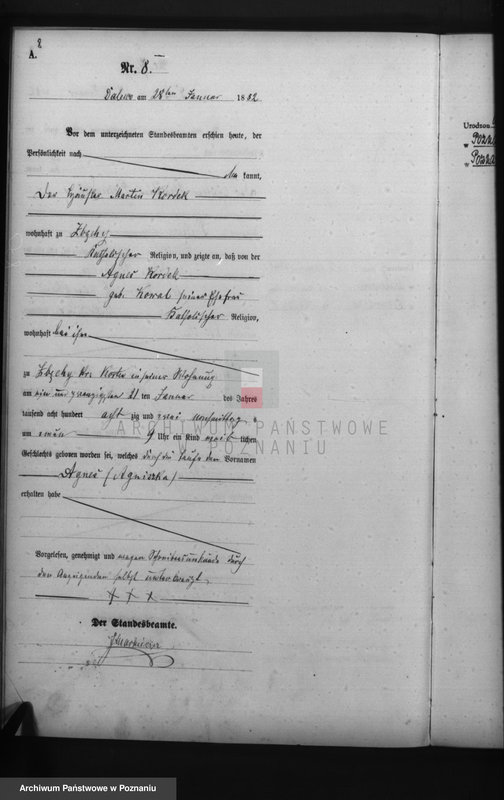 2
A.
Nr. 8.
Dalewo am 28ten Januar 1882
Vor dem unterzeichneten Standesbeamten erschien heute, der
Persönlichkeit nach
kannt,
Der Häusler Martin Kordek
wohnhaft zu Zbęchy
katholischer Religion, und zeigte an, daß von der
Agnes Kordek
geb. Kowal seiner Ehefrau
katholischer Religion,
wohnhaft bei ihm
zu Zbęchy Kr. Kosten in seiner Wohnung
am ein und zwanzigsten 21 ten Januar des Jahres
tausend acht hundert acht zig und zwei Vormittag s
um neun 9 Uhr ein Kind weib lichen
Geschlechts geboren worden sei, welches durch die Taufe den Vornamen
Agnes (Agnieszka)
erhalten habe
Vorgelesen, genehmigt und wegen Schreibensunkunde durch
den Anzeigenden selbst unterkreuzt.
+ + +
Der Standesbeamte.
Urodzon
w Pozn
w Pozna
ARCHIWUM PAŃSTWOWE
W POZNANIU
Archiwum Państwowe w Poznaniu